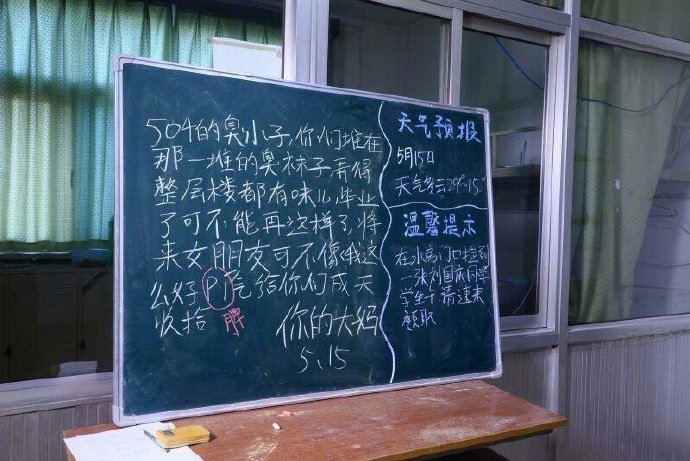 504的臭小子,你们堆在
那一堆的臭袜子,弄得
整层楼都有味儿,毕业
了可不能再这样了,将
来女朋友可不像我这
么好PI气给你们成天
收拾
脾
你的大妈
5.15
天气预报
5月15日
天气多云29℃~15℃
温馨提示
在水房门口捡到
一张刘国庆同学
学生卡 请速来
领取